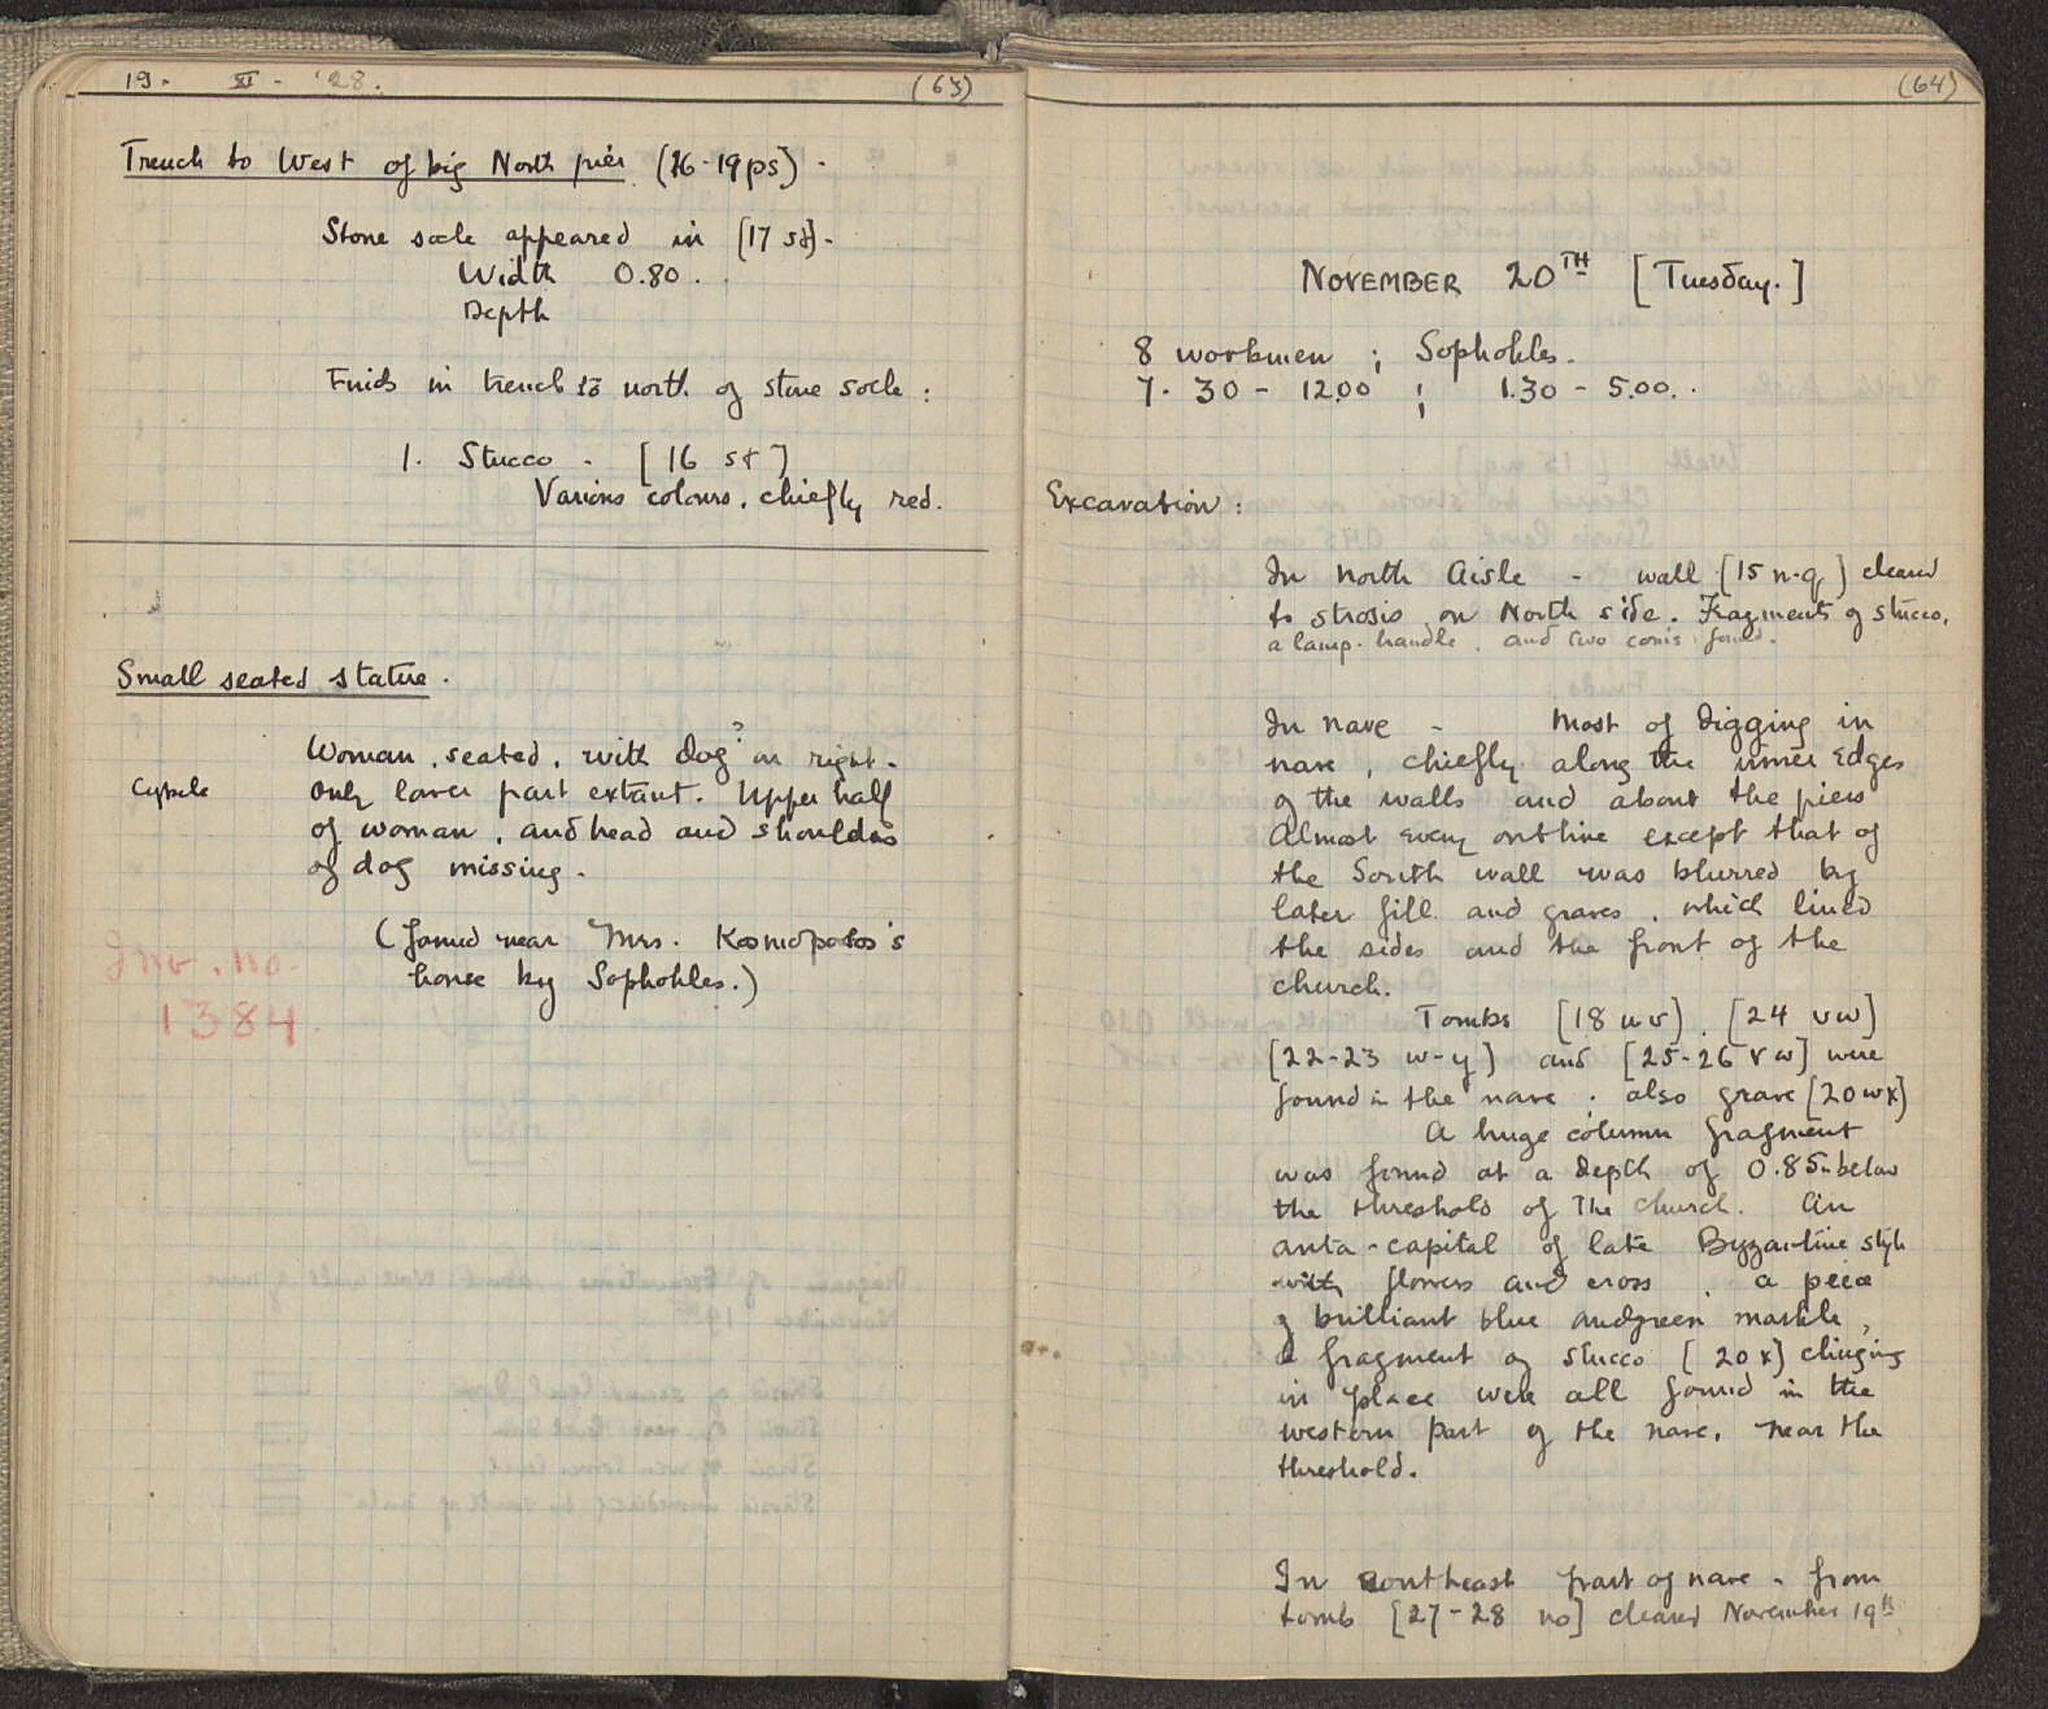 19. XI - '28. (63)
Trench to West of big North pier (16-19 ps) -
Stone socle appeared in [17 st] -
Width 0.80.
Depth
Finds in trench to north of stone socle :
1. Stucco - [16 st]
Various colours, chiefly red.
Small seated statue.
Woman, seated, with dog? on right.
Cybele
Only lower part extant. Upper half
of woman, and head and shoulders
of dog missing.
(found near Mrs. Kosmopoulos's
house by Sophokles.)
Inv. no.
1384.
(64)
NOVEMBER 20TH [Tuesday.]
8 workmen ; Sophokles.
7.30 - 12.00 ; 1.30 - 5.00.
Excavation :
In North Aisle - wall [15 n-q] cleared
to strosis on North side. Fragments of stucco,
a lamp-handle, and two coins found.
In nave - Most of digging in
nave, chiefly along the inner edges
of the walls and about the piers
Almost every outline except that of
the South wall was blurred by
later fill and graves, which lined
the sides and the front of the
church.
Tombs [18 uv], [24 vw]
[22-23 w-y] and [25-26 vw] were
found in the nave ; also grave [20 wx]
A huge column fragment
was found at a depth of 0.85m below
the threshold of the church. An
anta-capital of late Byzantine style
with flowers and cross, a piece
of brilliant blue and green marble,
a fragment of stucco [20 x] clinging
in place were all found in the
western part of the nave, near the
threshold.
In southeast part of nave - from
tomb [27-28 no] cleared November 19th